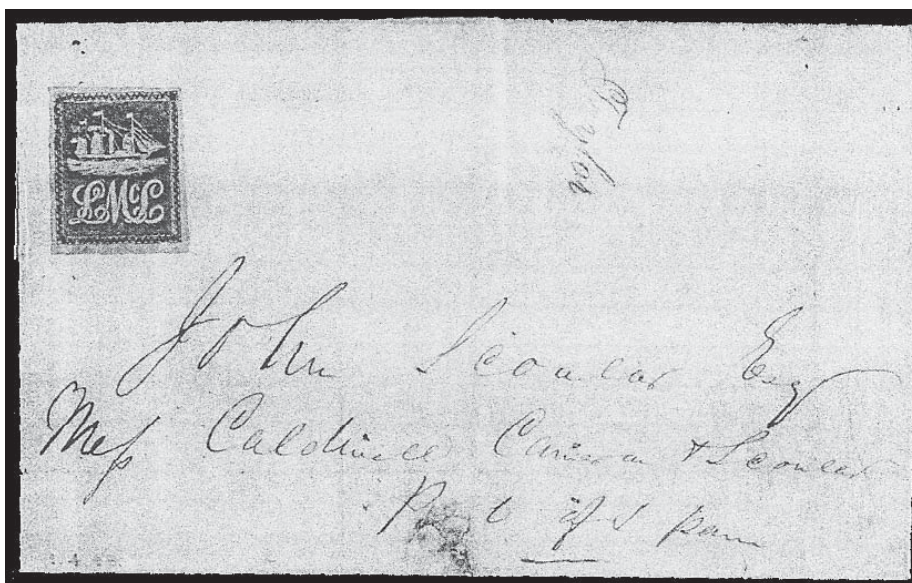 LMcL
Taylor
John Scoular Esq
Mess Caldwell Cameron & Scoular
Port of Spain